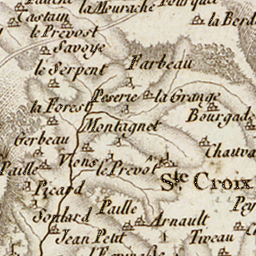 la Meurache
Castain
le Prevost
la Berd
Savoye
le Serpent
Farbeau
la Forest
Peserie
la Grange
Bourgade
Montagnet
Gerbeau
Chauva
Vions
le Prevot
Paille
Ste Croix
Picard
Paille
Pey
Soulard
Arnault
Jean Petit
Tiveau